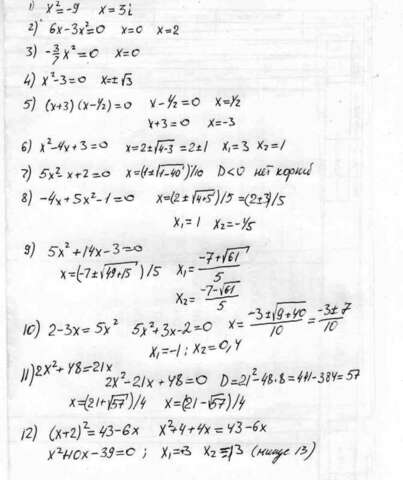 1) x²=-9 x=3i
2) 6x-3x²=0 x=0 x=2
3) -3/7 x²=0 x=0
4) x²-3=0 x=±√3
5) (x+3)(x-1/2)=0 x-1/2=0 x=1/2
x+3=0 x=-3
6) x²-4x+3=0 x=2±√4-3=2±1 x₁=3 x₂=1
7) 5x² x+2=0 x=(1±√1-40)/10 D<0 нет корней
8) -4x+5x²-1=0 x=(2±√4+5)/5=(2±3)/5
x₁=1 x₂=-1/5
9) 5x²+14x-3=0
x=(-7±√49+15)/5 x₁=(-7+√61)/5
x₂=(-7-√61)/5
10) 2-3x=5x² 5x²+3x-2=0 x=(-3±√9+40)/10=(-3±7)/10
x₁=-1; x₂=0,4
11) 2x²+48=21x
2x²-21x+48=0 D=21²-48·8=441-384=57
x=(21+√57)/4 x=(21-√57)/4
12) (x+2)²=43-6x x²+4+4x=43-6x
x²+10x-39=0; x₁=3 x₂=-13 (минус 13)